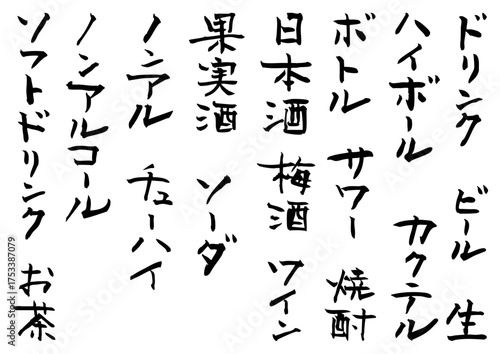 ドリンク ビール 生
ハイボール カクテル
ボトル サワー 焼酎
日本酒 梅酒 ワイン
果実酒 ソーダ
ノンアル チューハイ
ノンアルコール
ソフトドリンク お茶
Adobe Stock | #1753387079